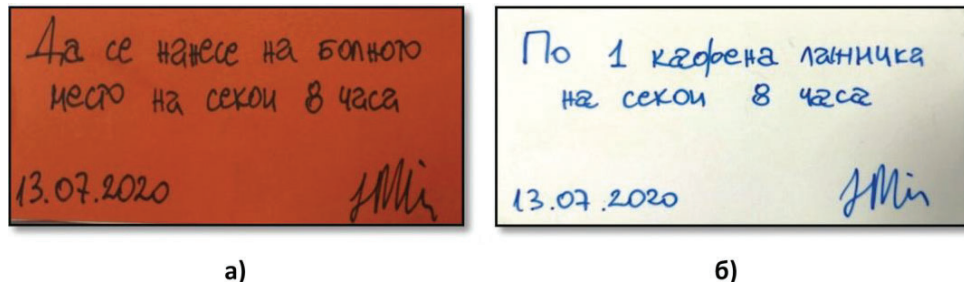 Да се нанесе на болното
место на секои 8 часа
13.07.2020
По 1 кафена лажичка
на секои 8 часа
13.07.2020
а)
б)